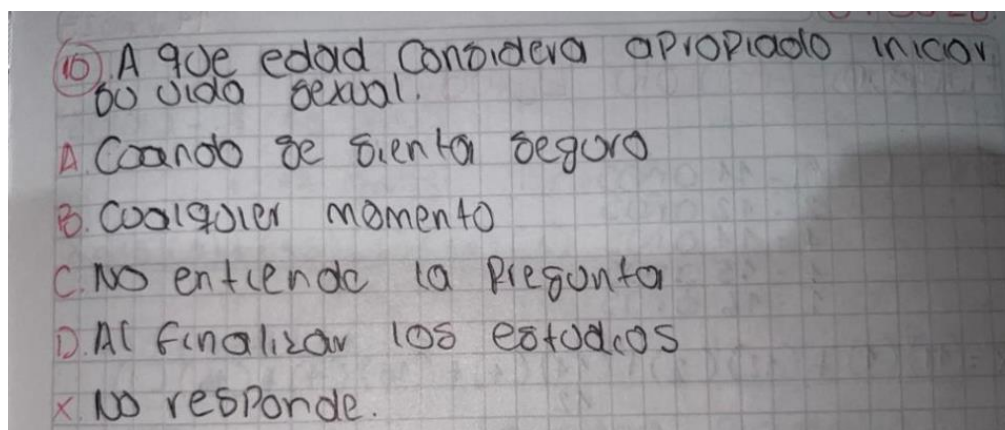 10). A que edad Considera apropiado iniciar
su vida sexual.
A. Cuando se sienta seguro
B. Cualquier momento
C. No entiendo la Pregunta
D. Al finalizar los estudios
X. No responde.